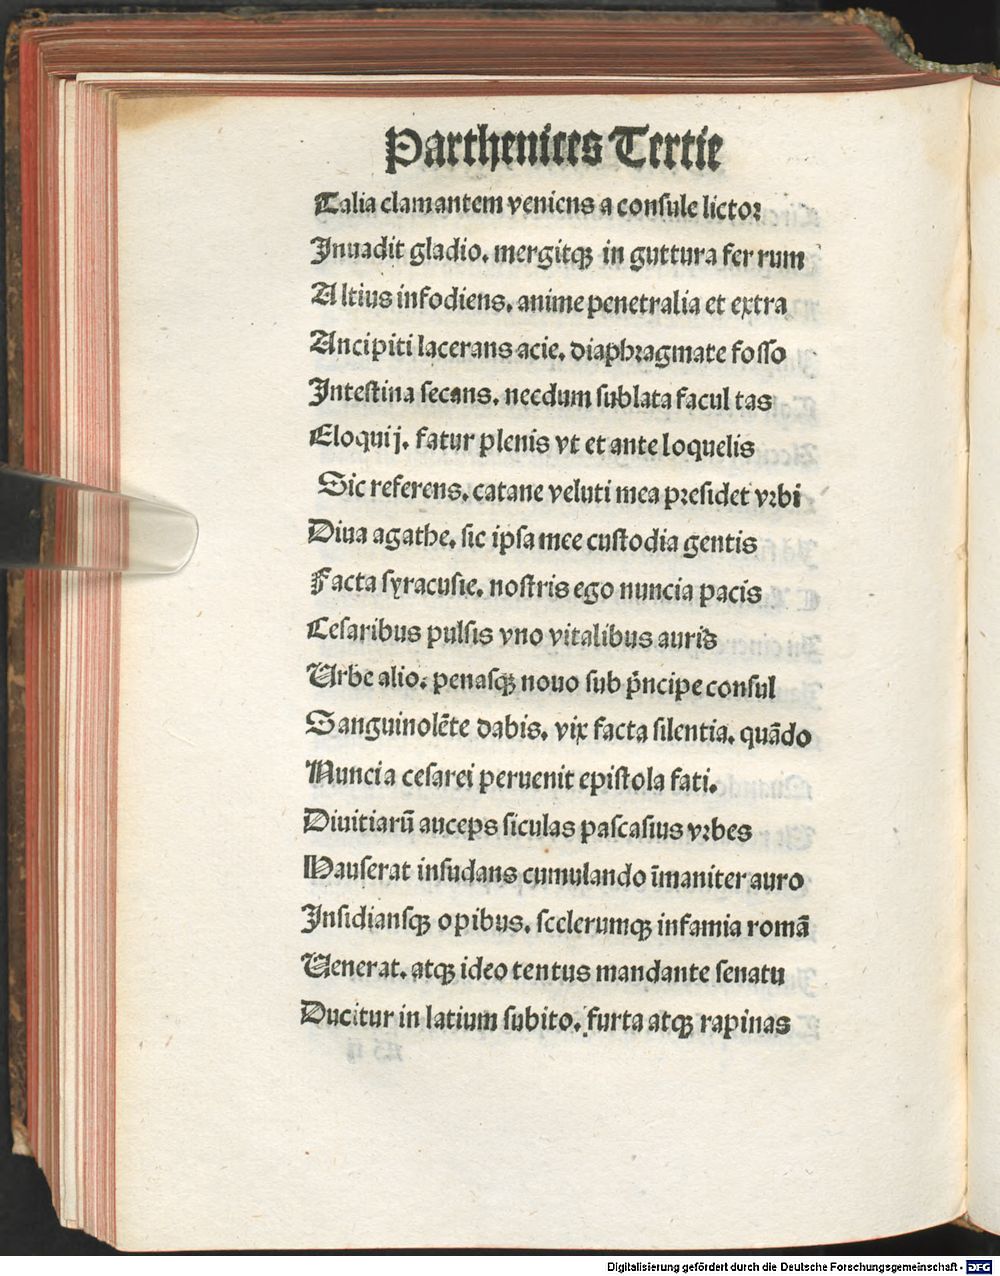 Parthenices Tertie
Talia clamantem veniens a consule lictor
Inuadit gladio. mergitqꝫ in guttura fer rum
A ltius infodiens. anime penetralia et extra
Ancipiti lacerans acie. diaphragmate fosso
Intestina secans. necdum sublata facul tas
Eloquij. fatur plenis vt et ante loquelis
Sic referens. catane veluti mea presidet vrbi
Diua agathe. sic ipsa mee custodia gentis
Facta syracusie. nostris ego nuncia pacis
Cesaribus pulsis vno vitalibus auris
Urbe alio. penasqꝫ nouo sub pͥncipe consul
Sanguinolēte dabis. vix facta silentia. quādo
Nuncia cesarei peruenit epistola fati.
Diuitiarū auceps siculas pascasius vrbes
Hauserat insudans cumulando īmaniter auro
Insidiansqꝫ opibus. scelerumqꝫ infamia romā
Uenerat. atqꝫ ideo tentus mandante senatu
Ducitur in latium subito. furta atqꝫ rapinas
Digitalisierung gefördert durch die Deutsche Forschungsgemeinschaft - DFG